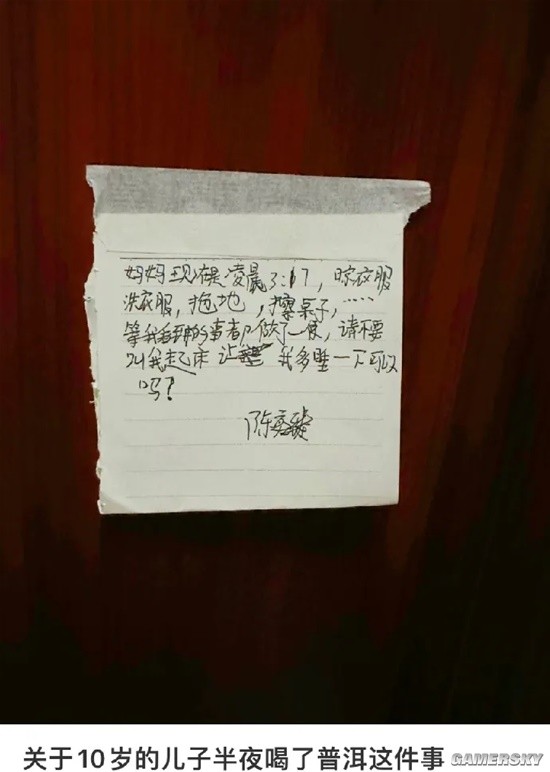 妈妈现在是凌晨3:17，晾衣服
洗衣服，拖地，擦桌子，……
等我的事都做了一便，请不要
叫我起床 让 我多睡一下可以
吗？
陈
关于10岁的儿子半夜喝了普洱这件事
GAMERSKY